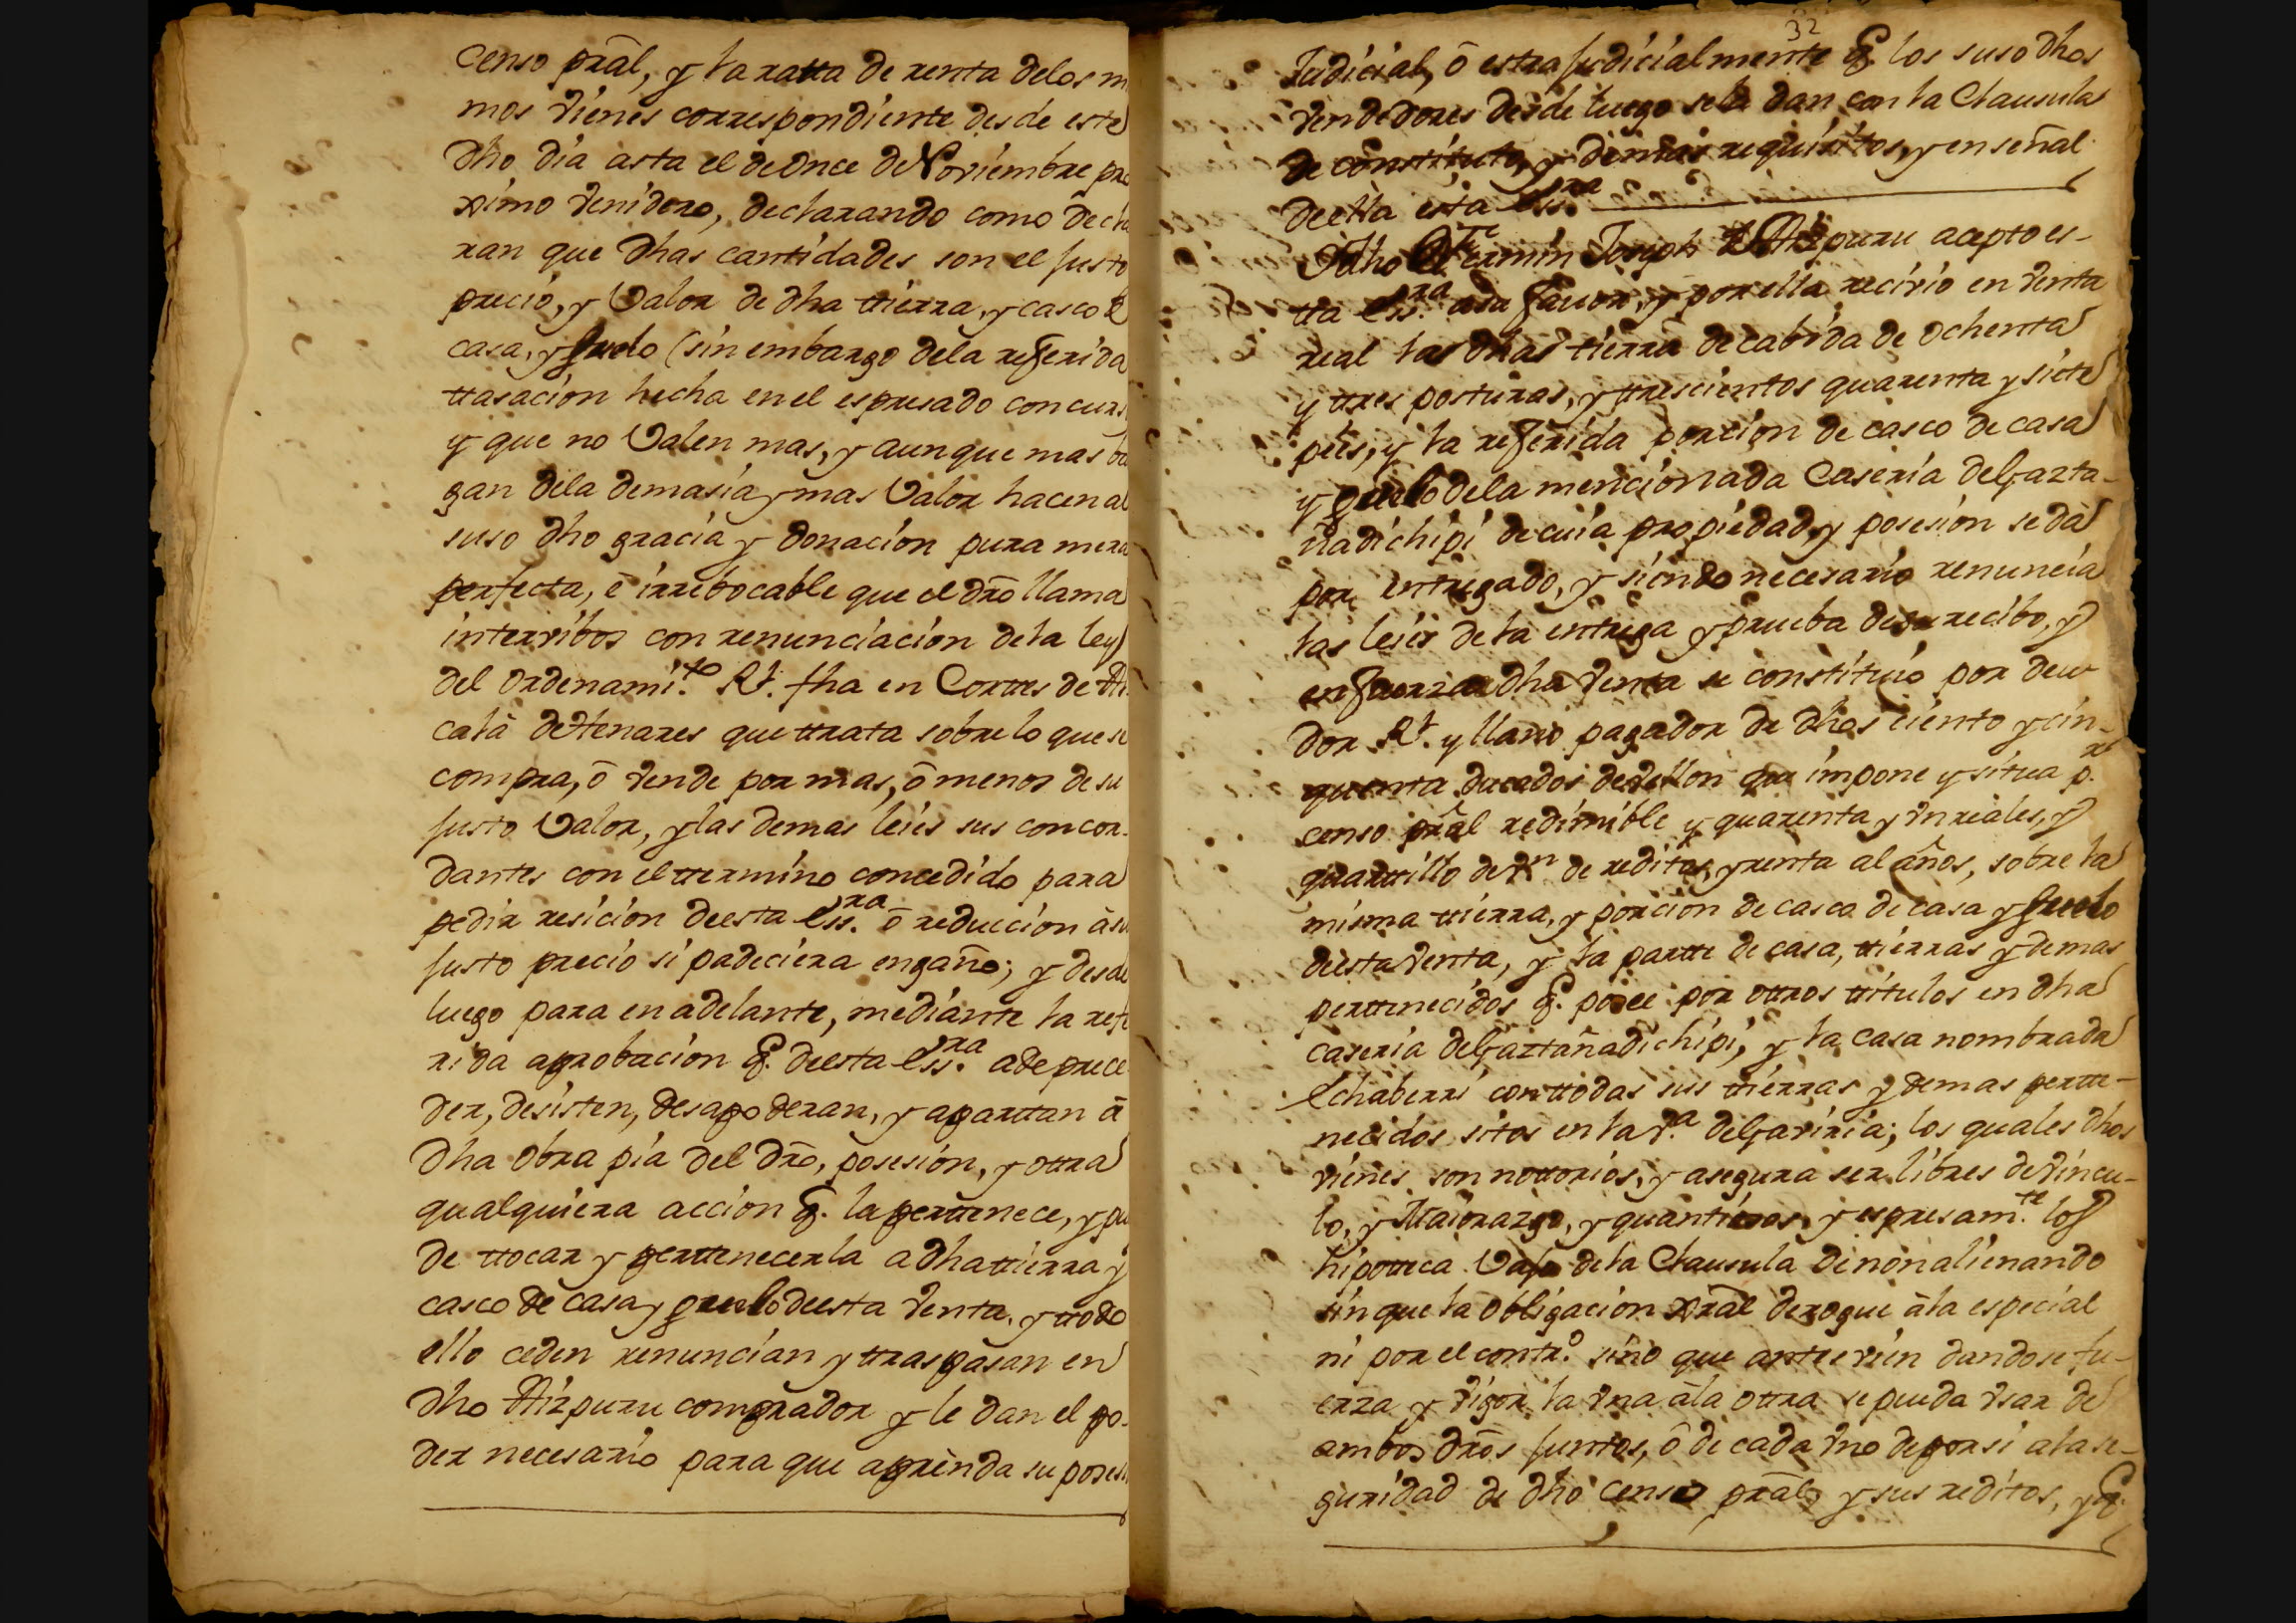 censo prãl, y la ratta de renta delos m
mos vienes correspondiente desde este
dho dia asta el de once de Noviembre pro
ximo venidero, declarando como decla
ran que dhas cantidades son el justo
precio, y Valor de dha ttierra, y casco d
casa, y suelo (sin embargo dela referida
ttasacion hecha en el espresado concurs
y que no Valen mas, y aunque mas bal
gan dela demasia y mas Valor hacen al
suso dho gracia y donacion pura mera
perfecta, è irrebocable que el dro llama
intervibos con renunciacion dela ley
del ordenami.to Rl. fha en Corttes de Al
calà de Henares que ttrata sobre lo que se
compra, ò vende por mas, ò menos de su
justo Valor, y las demas leies sus concor-
dantes con el ttermino concedido para
pedir resicion deesta Ess.ra ò reduccion àsu
justo precio si padeciera engaño; y desde
luego para en adelante, mediante la refe
rida aprobacion q. deesta Ess.ra a de prece
der, desisten, desapoderan, y aparttan à
dha obra pia del dro, posesion, y ottra
qualquiera accion q. la perttenece, y pu
de ttocar y perttenecerla a dha ttierra y
casco de casa y suelo deesta venta, y ttodo
ello ceden renuncian y ttraspasan en
dho Aizpuru comprador y le dan el po-
der necesario para que aprenda su posesi
32
Judicial, ò estrajudicialmente q. los suso dhos
vendedores desde luego se la dan con la Clausula
de constituto, y demas requisitos, y en señal
deella esta Ess.ra
Y dho Dn Fermin Joseph de Aizpuru acepto es-
tta Ess.ra asu favor, y por ella recivio en venta
real las dhas tierra de cabida de ochenta
y ttres posturas, y ttrescientos quarenta y siete
pies, y la referida porcion de casco de casa
y suelo dela mencionada Caseria de Gazta-
ñadichipi de cuia propiedad, y posesion se dà
por entregado, y siendo necesario renuncia
las leies dela entrega y prueba de su recibo, y
en fuerza de dha venta se constituio por deu-
dor Rl. y llano pagador de dhos ciento y cin-
quenta ducados de vellon que impone y situa p.r
censo prãl redimible y quarenta y un reales, y
quarttillo de vn de reditos, y renta al años, sobre la
misma ttierra, y porcion de casco de casa y suelo
deesta venta, y la partte de casa, ttierras y demas
perttenecidos q. posee por ottros ttitulos en dha
caseria de Gaztañadichipi, y la casa nombrada
Echaberri con ttodas sus ttierras y demas pertte-
necidos sitos en la v.a de Gaviria; los quales dhos
vienes son nottorios, y asegura ser libres de vincu-
lo, y Maiorazgo, y quantiosos, y espresam.te los
hipotteca Vajo dela Clausula de non alienando
sin que la obligacion grãl derogue àla especial
ni por el contr.o sino que antes vien dandose fu-
erza y vigor la una àla ottra se pueda usar de
ambos dros juntos, ò de cada uno de por si ala se-
guridad de dho censo prãl, y sus reditos, y q.